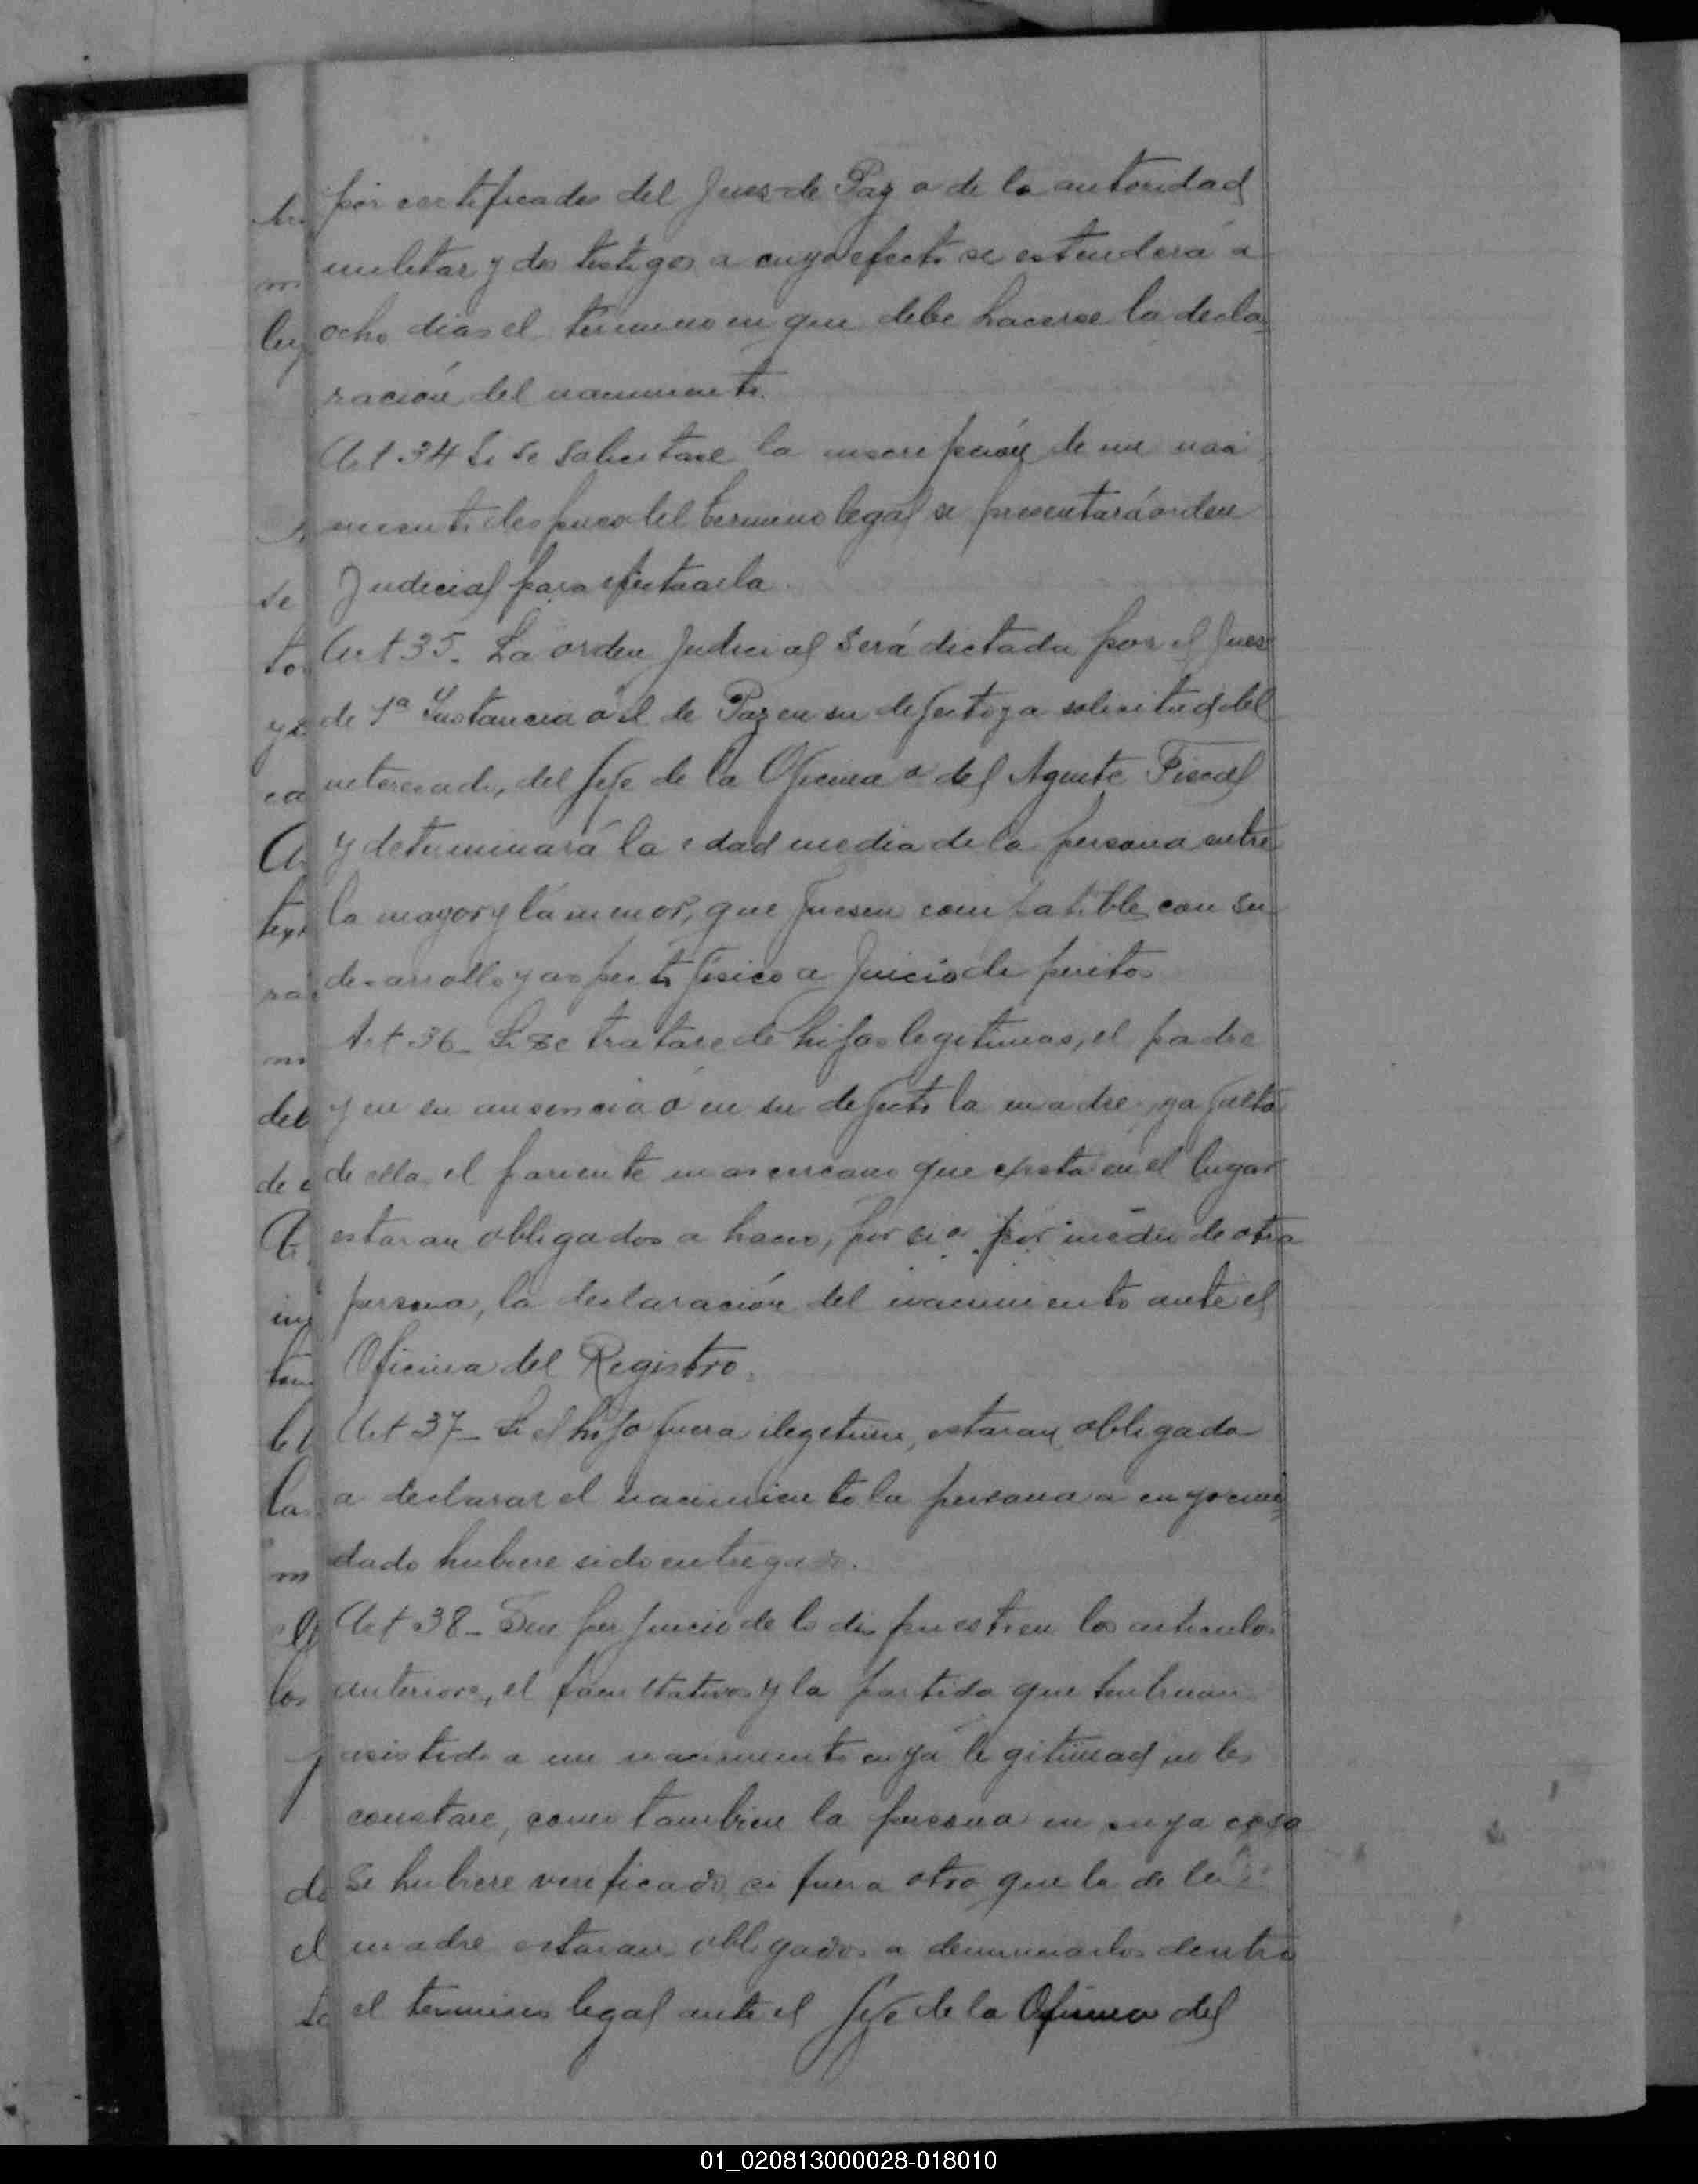 por certificados del Jues de Paz o de la autoridad
militar y dos testigos a cuyo efecto se estenderá a
ocho dias el termino en que debe hacerse la decla
ración del nacimiento.
Art 34 Si se solicitase la inscripción de un naci
miento despues del termino legal se presentará orden
Judicial para efectuarla
Art 35. La orden Judicial será dictada por el Jues
de 1ª Instancia ó el de Paz en su defecto y a solicitud del
interesado, del Jefe de la Oficina o del Agente Fiscal
y determinará la edad media de la persona entre
la mayor y la menor, que fuesen compatibles con su
desarrollo y aspecto fisico a Juicio de peritos
Art 36_ Si se tratase de hijos legitimos, el padre
y en su ausencia ó en su defecto la madre, y a falta
de ella, el pariente mas cercano que exista en el lugar
estaran obligados a hacer, por si o por medio de otra
persona, la declaración del nacimiento ante el
Oficina del Registro.
Art 37_ Si el hijo fuera ilegitimo, estaran obligado
a declarar el nacimiento la persona a cuyo cui
dado hubiere sido entregado.
Art 38_ Sin perjuicio de lo dispuesto en los articulos
anteriores, el facultativo y la partida que hubieran
asistido a un nacimiento cuya legitimad no les
constare, como tambien la persona en cuya casa
se hubiere verificado, si fuera otra que la de la
madre estaran obligados a denunciarlos dentro
el termino legal ante el Jefe de la Oficina del
01_020813000028-018010